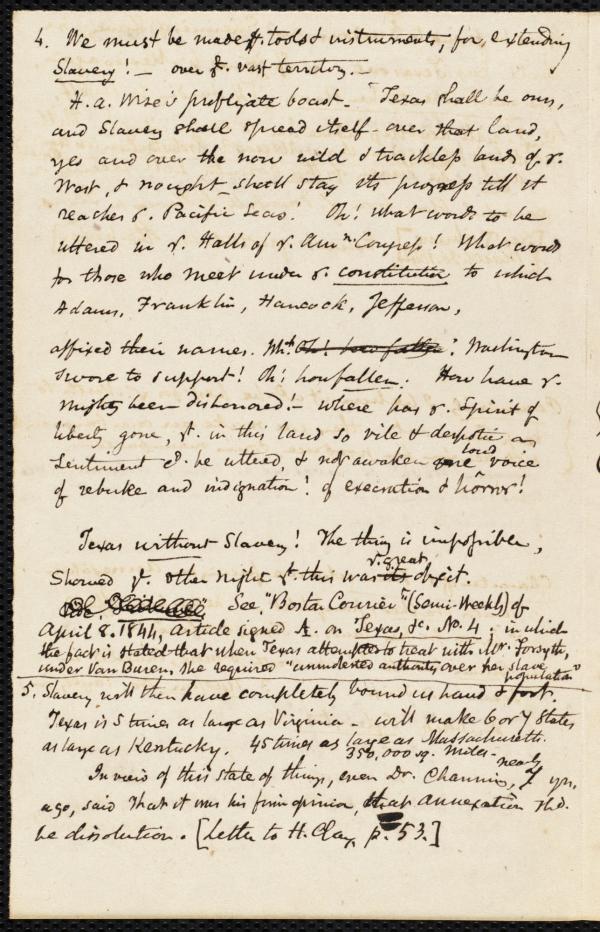 4. We must be made ye. tools & instruments, for extending
Slavery! — over ye. vast territory. —
H. A. Wise's profligate boast — "Texas shall be ours,
and Slavery shall spread itself over that land,
yes and over the now wild & trackless lands of ye.
West, & nought shall stay its progress till it
reaches ye. Pacific Seas! Oh! what words to be
uttered in ye. Halls of ye. Amn. Congress! What words
for those who meet under ye. constitution to which
Adams, Franklin, Hancock, Jefferson,
affixed their names. Wh. Oh! how fallen! Washington
swore to support! Oh! how fallen. How have ye.
mighty been dishonored! — where has ye. Spirit of
liberty gone, yt. in this land so vile & despotic a
Sentiment cd. be uttered, & not awaken one loud voice
of rebuke and indignation! of execration & horror!
Texas without Slavery! The thing is impossible,
Showed ye. other night yt. this was its ye. great object.
See, "Boston Courier" (Semi-Weekly) of
April 8. 1844, Article signed A. on "Texas, &c. No. 4; in which
the fact is stated that when Texas attempted to treat with Mr. Forsyth,
under Van Buren, she required "unmolested authority over her slave
population"
5. Slavery will then have completely bound us hand & foot.
Texas is 5 times as large as Virginia — will make 6 or 7 States
as large as Kentucky. 45 times as large as Massachusetts.
350,000 sq. miles —
In view of this state of things, even Dr. Channing, nearly 7 yrs.
ago, said that it was his firm opinion, that annexation shd.
be dissolution. [Letter to H. Clay, p. 53.]